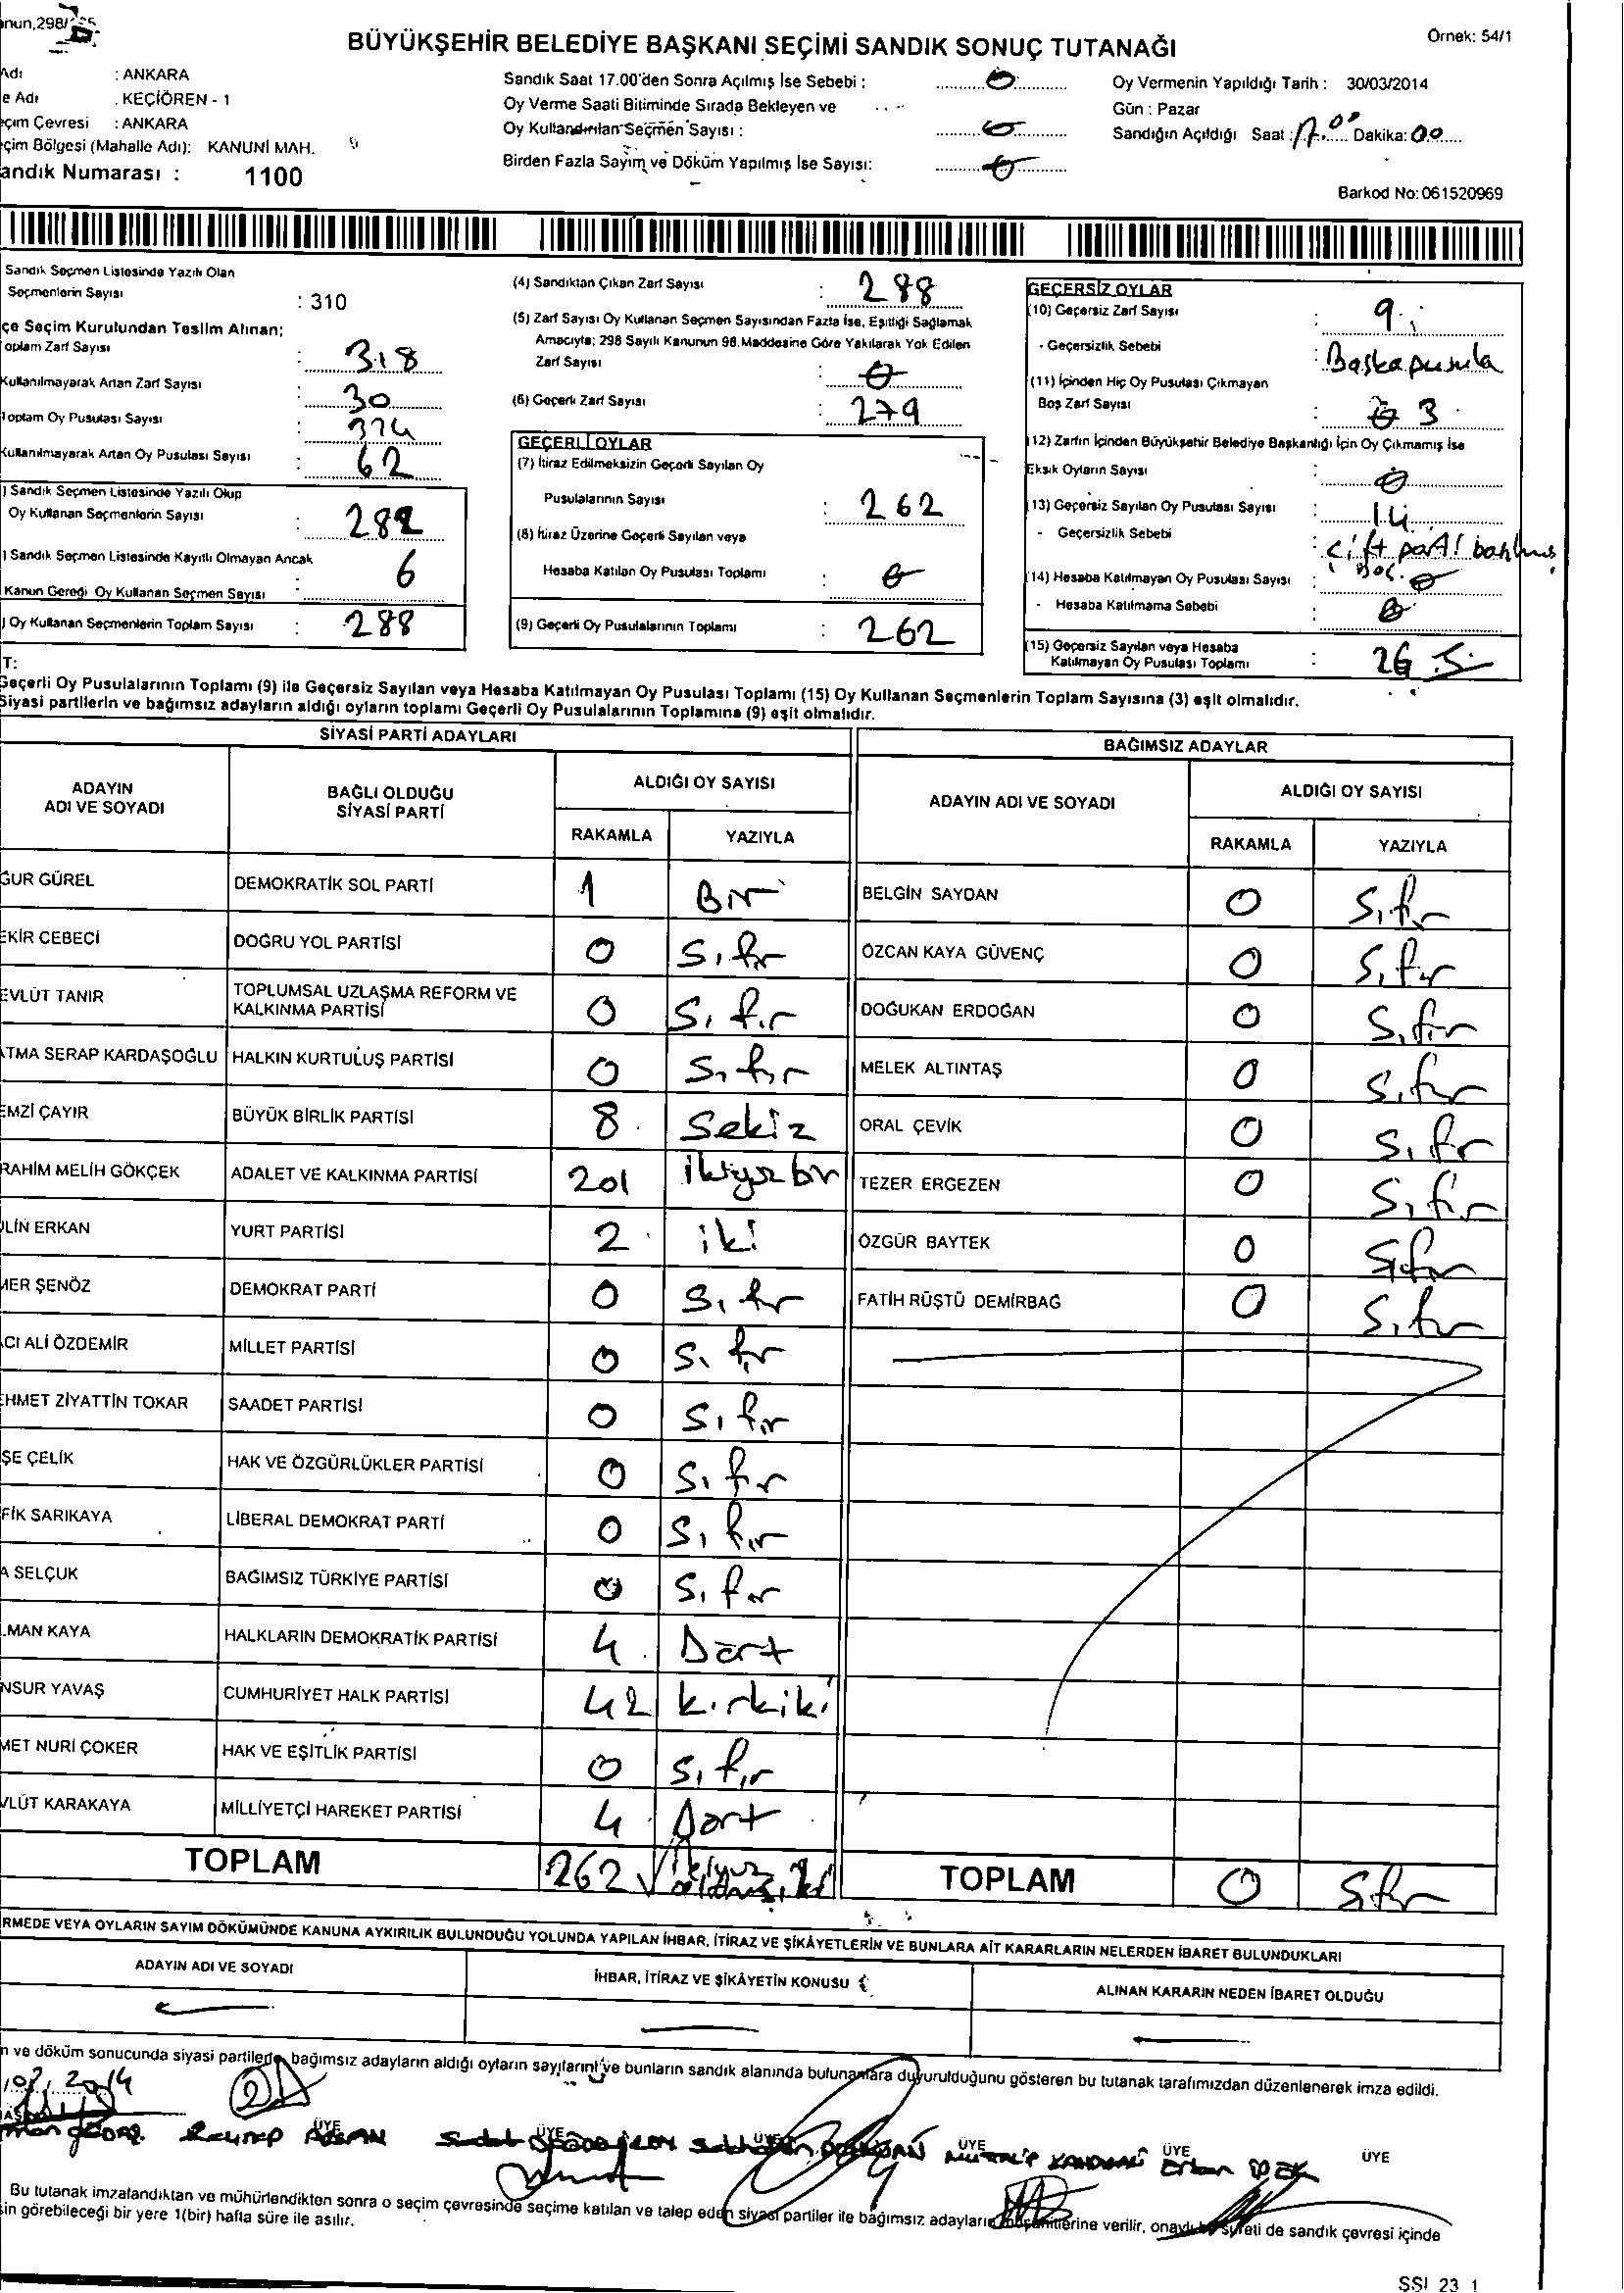 nun,298/
BÜYÜKŞEHİR BELEDİYE BAŞKANI SEÇİMİ SANDIK SONUÇ TUTANAĞI
Örnek: 54/1
Adı : ANKARA
e Adı . KEÇİÖREN - 1
eçim Çevresi : ANKARA
eçim Bölgesi (Mahalle Adı): KANUNİ MAH.
andık Numarası : 1100
Sandık Saat 17.00'den Sonra Açılmış İse Sebebi : 0
Oy Verme Saati Bitiminde Sırada Bekleyen ve
Oy Kullandırılan Seçmen Sayısı : 0
Birden Fazla Sayım ve Döküm Yapılmış İse Sayısı: 0
Oy Vermenin Yapıldığı Tarih : 30/03/2014
Gün : Pazar
Sandığın Açıldığı Saat : 17.00 Dakika: 00
Barkod No: 061520969
Sandık Seçmen Listesinde Yazılı Olan
Seçmenlerin Sayısı : 310
çe Seçim Kurulundan Teslim Alınan;
oplam Zarf Sayısı : 318
Kullanılmayarak Artan Zarf Sayısı : 30
Toplam Oy Pusulası Sayısı : 374
Kullanılmayarak Artan Oy Pusulası Sayısı : 62
) Sandık Seçmen Listesinde Yazılı Olup
Oy Kullanan Seçmenlerin Sayısı : 282
) Sandık Seçmen Listesinde Kayıtlı Olmayan Ancak
Kanun Gereği Oy Kullanan Seçmen Sayısı : 6
) Oy Kullanan Seçmenlerin Toplam Sayısı : 288
(4) Sandıktan Çıkan Zarf Sayısı : 288
(5) Zarf Sayısı Oy Kullanan Seçmen Sayısından Fazla İse, Eşitliği Sağlamak
Amacıyla; 298 Sayılı Kanunun 98.Maddesine Göre Yakılarak Yok Edilen
Zarf Sayısı : 0
(6) Geçerli Zarf Sayısı : 279
GEÇERLİ OYLAR
(7) İtiraz Edilmeksizin Geçerli Sayılan Oy
Pusulalarının Sayısı : 262
(8) İtiraz Üzerine Geçerli Sayılan veya
Hesaba Katılan Oy Pusulası Toplamı : 0
(9) Geçerli Oy Pusulalarının Toplamı : 262
GEÇERSİZ OYLAR
(10) Geçersiz Zarf Sayısı : 9
- Geçersizlik Sebebi : Başka pusula
(11) İçinden Hiç Oy Pusulası Çıkmayan
Boş Zarf Sayısı : 3
(12) Zarfın İçinden Büyükşehir Belediye Başkanlığı İçin Oy Çıkmamış İse
Eksik Oyların Sayısı : 0
(13) Geçersiz Sayılan Oy Pusulası Sayısı : 14
- Geçersizlik Sebebi : çift parti
(14) Hesaba Katılmayan Oy Pusulası Sayısı : 0
- Hesaba Katılmama Sebebi : 0
(15) Geçersiz Sayılan veya Hesaba
Katılmayan Oy Pusulası Toplamı : 26
T:
Geçerli Oy Pusulalarının Toplamı (9) ile Geçersiz Sayılan veya Hesaba Katılmayan Oy Pusulası Toplamı (15) Oy Kullanan Seçmenlerin Toplam Sayısına (3) eşit olmalıdır.
Siyasi partilerin ve bağımsız adayların aldığı oyların toplamı Geçerli Oy Pusulalarının Toplamına (9) eşit olmalıdır.
SİYASİ PARTİ ADAYLARI
ADAYIN ADI VE SOYADI BAĞLI OLDUĞU SİYASİ PARTİ ALDIĞI OY SAYISI
RAKAMLA YAZIYLA
ĞUR GÜREL DEMOKRATİK SOL PARTİ 1 Bir
EKİR CEBECİ DOĞRU YOL PARTİSİ 0 Sıfır
EVLÜT TANIR TOPLUMSAL UZLAŞMA REFORM VE KALKINMA PARTİSİ 0 Sıfır
ATMA SERAP KARDAŞOĞLU HALKIN KURTULUŞ PARTİSİ 0 Sıfır
EMZİ ÇAYIR BÜYÜK BİRLİK PARTİSİ 8 Sekiz
RAHİM MELİH GÖKÇEK ADALET VE KALKINMA PARTİSİ 201 ikiyüzbir
LİN ERKAN YURT PARTİSİ 2 iki
MER ŞENÖZ DEMOKRAT PARTİ 0 Sıfır
ACI ALİ ÖZDEMİR MİLLET PARTİSİ 0 Sıfır
EHMET ZİYATTİN TOKAR SAADET PARTİSİ 0 Sıfır
ŞE ÇELİK HAK VE ÖZGÜRLÜKLER PARTİSİ 0 Sıfır
FİK SARIKAYA LİBERAL DEMOKRAT PARTİ 0 Sıfır
A SELÇUK BAĞIMSIZ TÜRKİYE PARTİSİ 0 Sıfır
LMAN KAYA HALKLARIN DEMOKRATİK PARTİSİ 4 Dört
NSUR YAVAŞ CUMHURİYET HALK PARTİSİ 42 Kırkiki
MET NURİ ÇOKER HAK VE EŞİTLİK PARTİSİ 0 Sıfır
VLÜT KARAKAYA MİLLİYETÇİ HAREKET PARTİSİ 4 Dört
TOPLAM 262 ikiyüz altmışiki
BAĞIMSIZ ADAYLAR
ADAYIN ADI VE SOYADI ALDIĞI OY SAYISI
RAKAMLA YAZIYLA
BELGİN SAYDAN 0 Sıfır
ÖZCAN KAYA GÜVENÇ 0 Sıfır
DOĞUKAN ERDOĞAN 0 Sıfır
MELEK ALTINTAŞ 0 Sıfır
ORAL ÇEVİK 0 Sıfır
TEZER ERGEZEN 0 Sıfır
ÖZGÜR BAYTEK 0 Sıfır
FATİH RÜŞTÜ DEMİRBAĞ 0 Sıfır
TOPLAM 0 Sıfır
RMEDE VEYA OYLARIN SAYIM DÖKÜMÜNDE KANUNA AYKIRILIK BULUNDUĞU YOLUNDA YAPILAN İHBAR, İTİRAZ VE ŞİKÂYETLERİN VE BUNLARA AİT KARARLARIN NELERDEN İBARET BULUNDUKLARI
ADAYIN ADI VE SOYADI İHBAR, İTİRAZ VE ŞİKÂYETİN KONUSU ALINAN KARARIN NEDEN İBARET OLDUĞU
n ve döküm sonucunda siyasi partilerle bağımsız adayların aldığı oyların sayılarını ve bunların sandık alanında bulunanlara duyurulduğunu gösteren bu tutanak tarafımızdan düzenlenerek imza edildi.
2014
ÜYE ÜYE ÜYE ÜYE ÜYE ÜYE
Bu tutanak imzalandıktan ve mühürlendikten sonra o seçim çevresinde seçime katılan ve talep eden siyasi partiler ile bağımsız adayların müşahitlerine verilir, onaylı bir sureti de sandık çevresi içinde
in görebileceği bir yere 1(bir) hafta süre ile asılır.
SSI 23 1